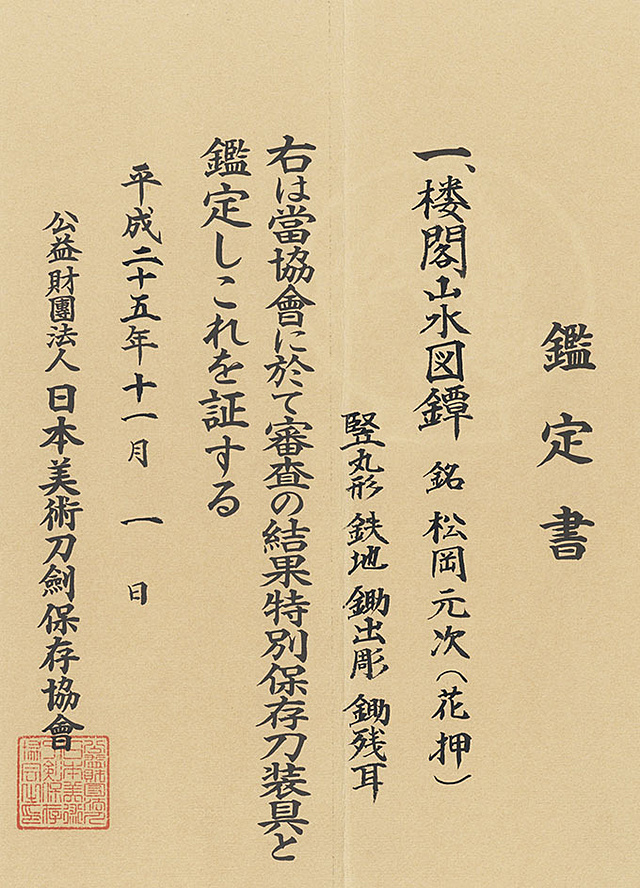 鑑定書
一、楼閣山水図鐔 銘 松岡元次(花押)
竪丸形 鉄地 鋤出彫 鋤残耳
右は當協會に於て審査の結果特別保存刀装具と
鑑定しこれを証する
平成二十五年十一月 一 日
公益財團法人 日本美術刀劍保存協會